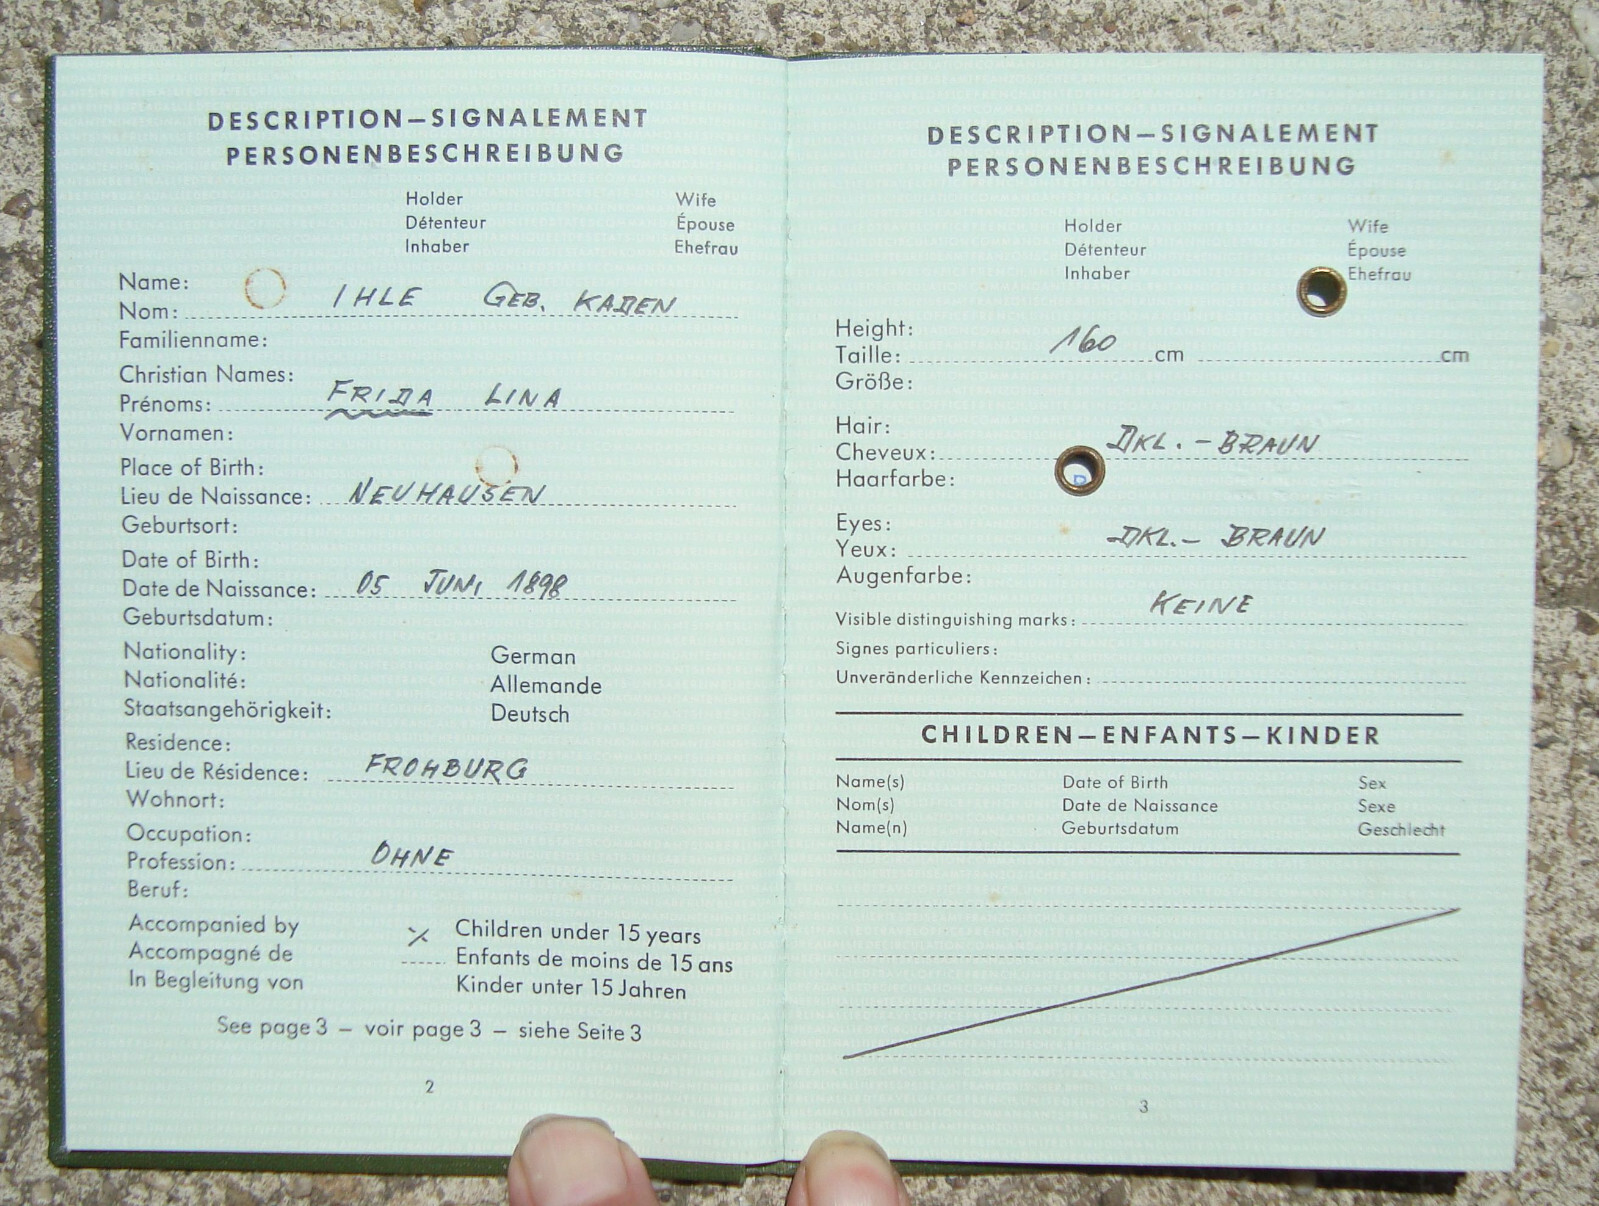 DESCRIPTION—SIGNALEMENT
PERSONENBESCHREIBUNG
Holder Wife
Détenteur Épouse
Inhaber Ehefrau
Name:
Nom: IHLE GEB. KADEN
Familienname:
Christian Names:
Prénoms: FRIDA LINA
Vornamen:
Place of Birth:
Lieu de Naissance: NEUHAUSEN
Geburtsort:
Date of Birth:
Date de Naissance: 05 JUNI 1898
Geburtsdatum:
Nationality: German
Nationalité: Allemande
Staatsangehörigkeit: Deutsch
Residence:
Lieu de Résidence: FROHBURG
Wohnort:
Occupation:
Profession: OHNE
Beruf:
Accompanied by Children under 15 years
Accompagné de Enfants de moins de 15 ans
In Begleitung von Kinder unter 15 Jahren
See page 3 – voir page 3 – siehe Seite 3
2
DESCRIPTION—SIGNALEMENT
PERSONENBESCHREIBUNG
Holder Wife
Détenteur Épouse
Inhaber Ehefrau
Height:
Taille: 160 cm cm
Größe:
Hair:
Cheveux: DKL.-BRAUN
Haarfarbe:
Eyes:
Yeux: DKL.-BRAUN
Augenfarbe:
Visible distinguishing marks: KEINE
Signes particuliers:
Unveränderliche Kennzeichen:
CHILDREN—ENFANTS—KINDER
Name(s) Date of Birth Sex
Nom(s) Date de Naissance Sexe
Name(n) Geburtsdatum Geschlecht
3